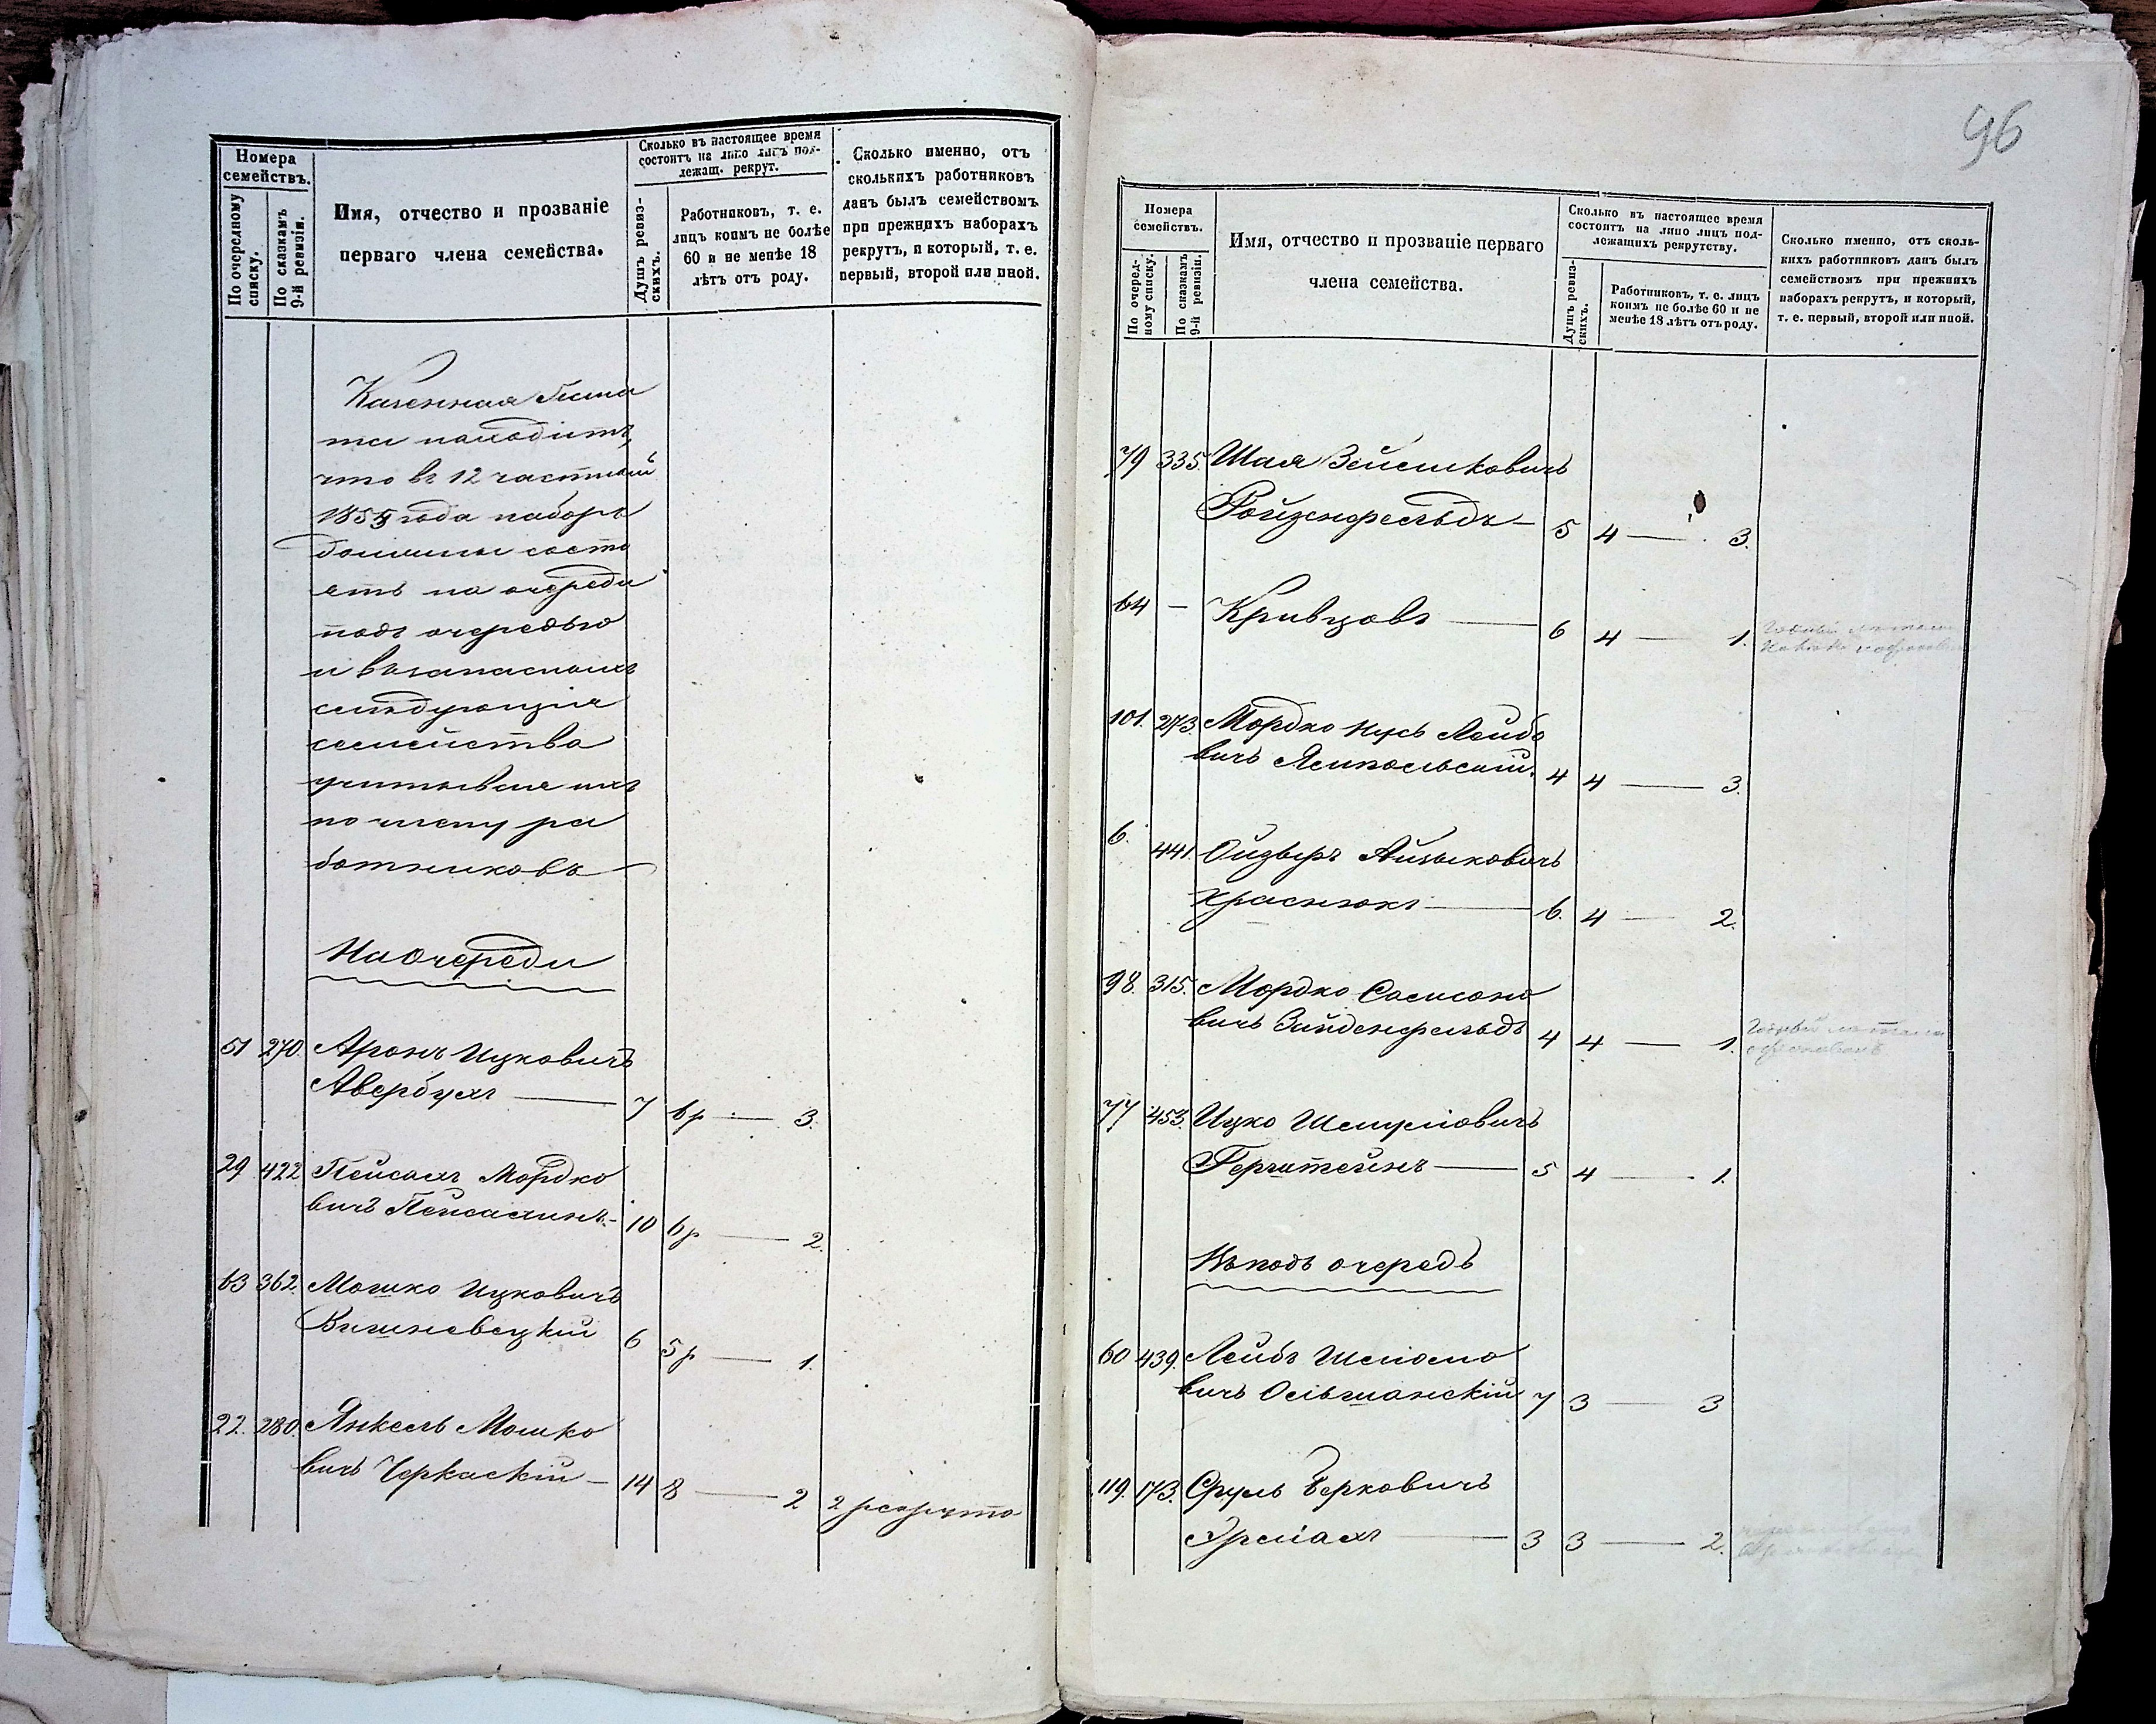 Номера
семействъ.
По очередному
списку.
По сказкамъ
9-й ревизіи.
Имя, отчество и прозваніе
перваго члена семейства.
Сколько въ настоящее время
состоитъ на лицо лицъ под-
лежащ. рекрут.
Душъ ревиз-
скихъ.
Работниковъ, т. е.
лицъ коимъ не болѣе
60 и не менѣе 18
лѣтъ отъ роду.
Сколько именно, отъ
сколькихъ работниковъ
данъ былъ семействомъ
при прежнихъ наборахъ
рекрутъ, и который, т. е.
первый, второй или иной.
Казенная Пала
та находитъ,
что въ 12 частный
1855 года наборъ
должны состо
ять на очереди
подъ очередью
и въ запасныхъ
слѣдующія
семейства
учитывая ихъ
по числу ра
ботниковъ
На Очереди
51 270. Аронъ Ицковичъ
Авербухъ — 7 6р — 3.
29 422 Пейсахъ Мордко
вичъ Пейсахинъ - 10 6р — 2.
63 362. Мошко Ицковичъ
Вишневецкій 6 5р — 1.
22. 280. Янкель Мошко
вичъ Черкаскій — 14 8 — 2 2 рекрута
96
Номера
семействъ.
По очеред-
ному списку.
По сказкамъ
9-й ревизіи.
Имя, отчество и прозваніе перваго
члена семейства.
Сколько въ настоящее время
состоитъ на лицо лицъ под-
лежащихъ рекрутству.
Душъ ревиз-
скихъ.
Работниковъ, т. е. лицъ
коимъ не болѣе 60 и не
менѣе 18 лѣтъ отъ роду.
Сколько именно, отъ сколь-
кихъ работниковъ данъ былъ
семействомъ при прежнихъ
наборахъ рекрутъ, и который,
т. е. первый, второй или иной.
79 335. Шая Зейликовичъ
Ройзенфельдъ — 5 4 — 3.
64 — Кривцовъ — 6 4 — 1.
101. 273. Мордко Нусь Лейбо
вичъ Ямпольскій. 4 4 — 3.
6. 441. Ойзверъ Айзыковичъ
Краснюкъ — 6. 4 — 2.
98. 315. Мордко Самсоно
вичъ Зайденфельдъ 4 4 — 1.
77 453. Ицко Шмулiовичъ
Герштейнъ — 5 4 — 1.
Въ подъ очередь
60 439. Лейбъ Шліомо
вичъ Ольшанскій 7 3 — 3
119. 173. Сруль Берковичъ
— 3 3 — 2.